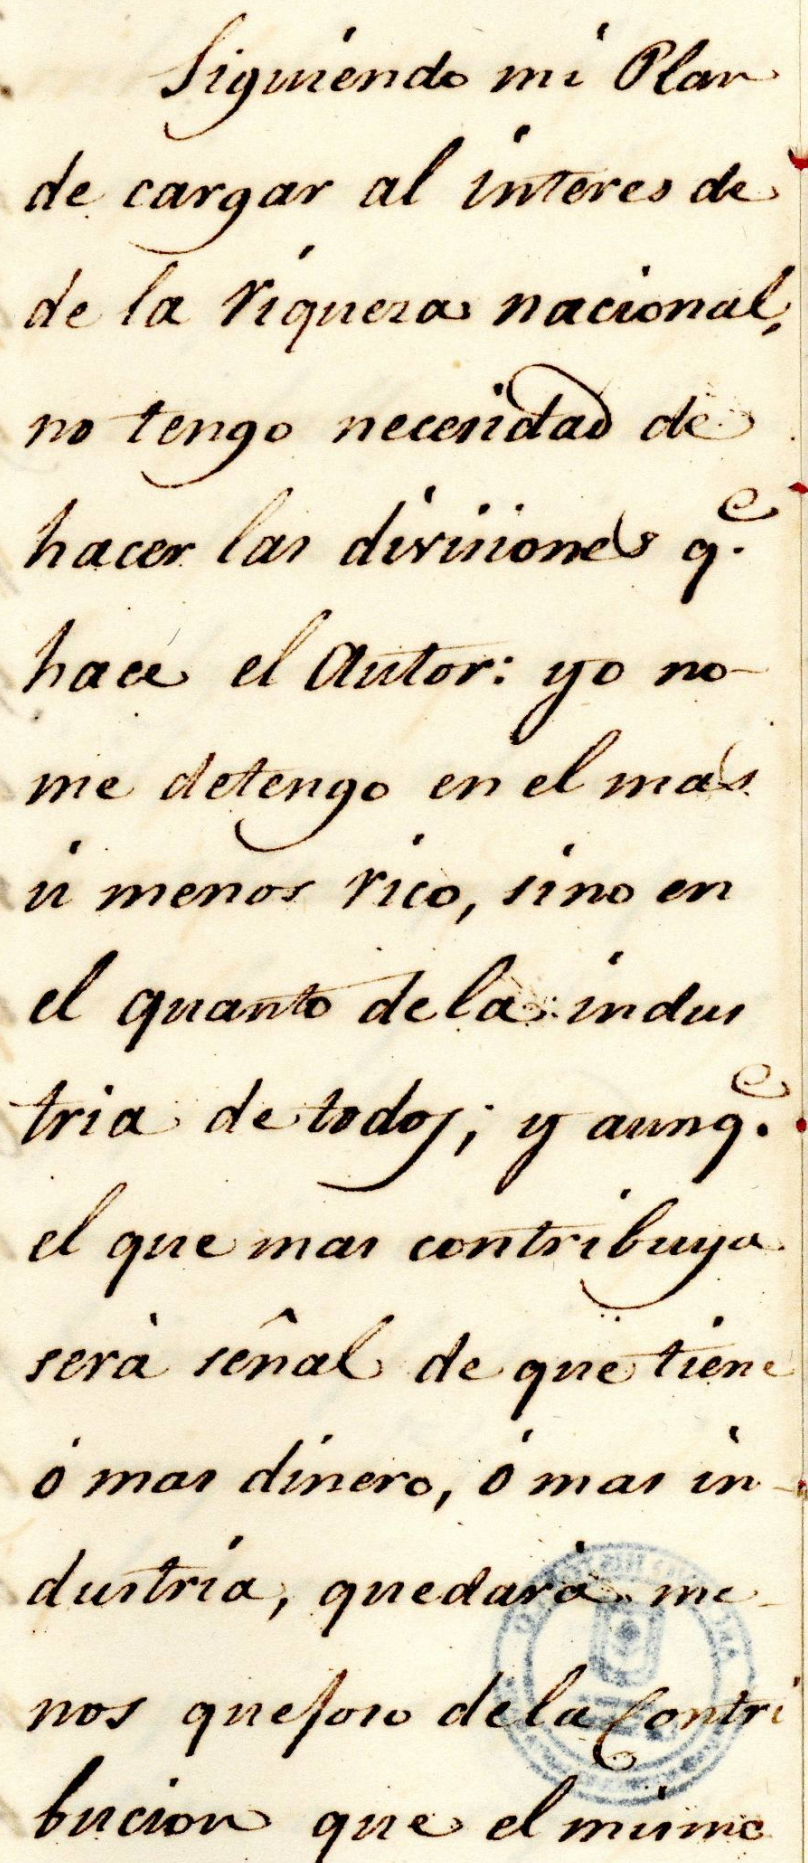 Siguiendo mi Plan
de cargar al interes de
de la riqueza nacional,
no tengo necesidad de
hacer las divisiones q.e
hace el Autor: yo no
me detengo en el mas
ú menos rico, sino en
el quanto de la indus
tria de todos; y aunq.e
el que mas contribuya
será señal de que tiene
ó mas dinero, ó mas in-
dustria, quedará me-
nos quejoso de la Contri
bucion que el mismo